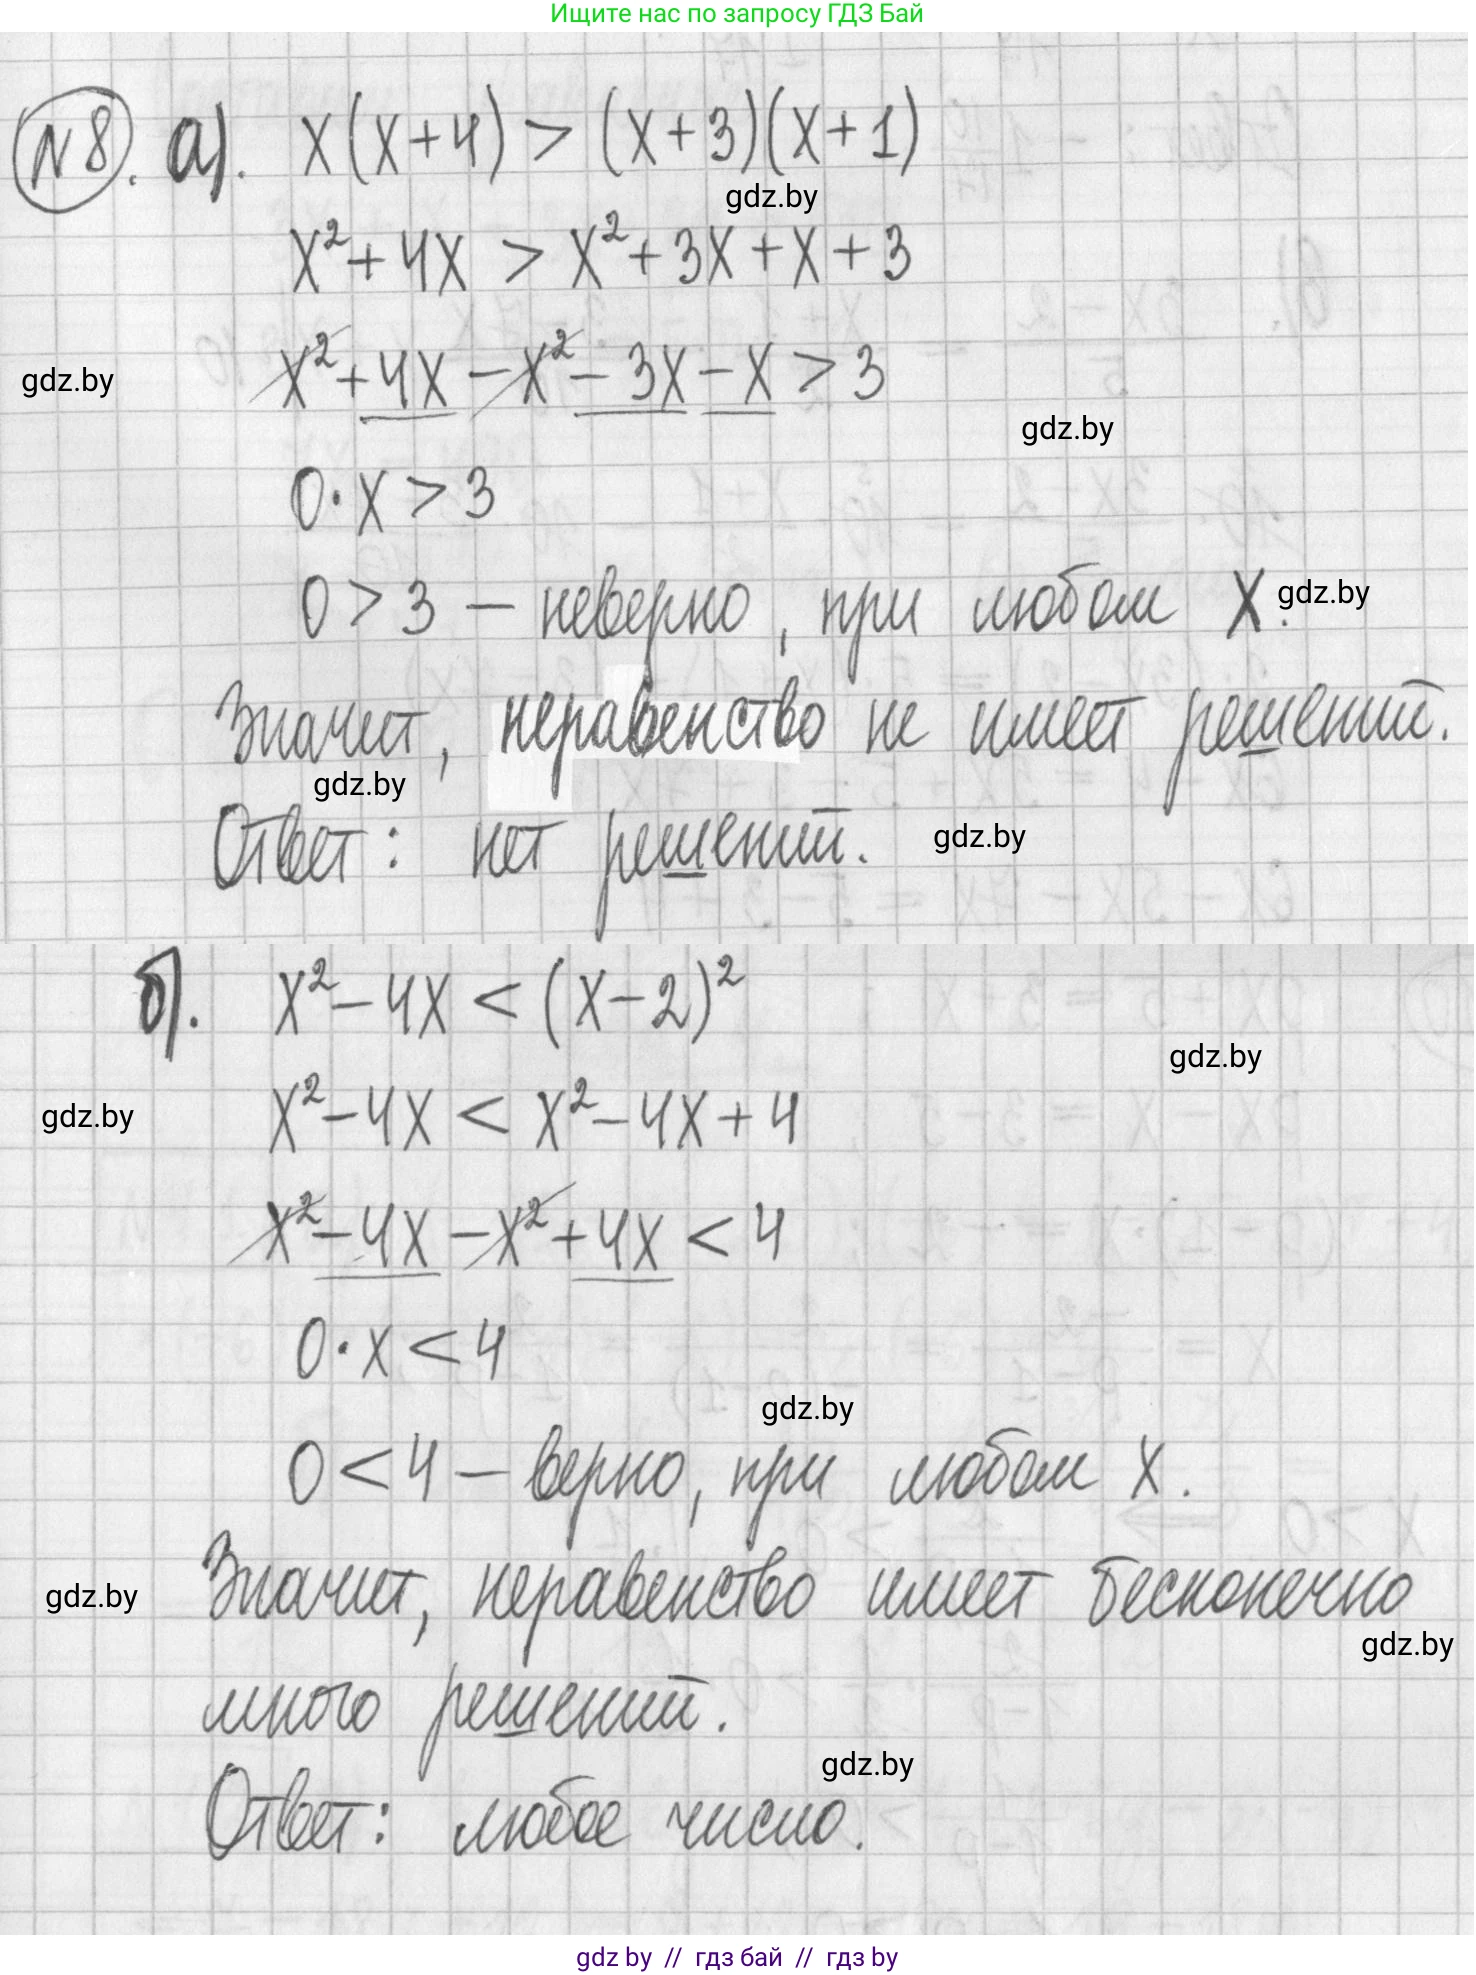 Ищите нас по запросу ГДЗ Бай
№8. а). x(x+4) > (x+3)(x+1)
gdz.by
x²+4x > x²+3x+x+3
x²+4x-x²-3x-x>3
gdz.by
gdz.by
0·x>3
0>3 — неверно, при любом x.
gdz.by
Значит, неравенство не имеет решений.
gdz.by
Ответ: нет решений.
gdz.by
б). x²-4x<(x-2)²
gdz.by
x²-4x<x²-4x+4
gdz.by
x²-4x-x²+4x<4
0·x<4
gdz.by
0<4 — верно, при любом x.
Значит, неравенство имеет бесконечно
gdz.by
gdz.by
много решений.
gdz.by
Ответ: любое число.
gdz by // гдз бай // гдз by